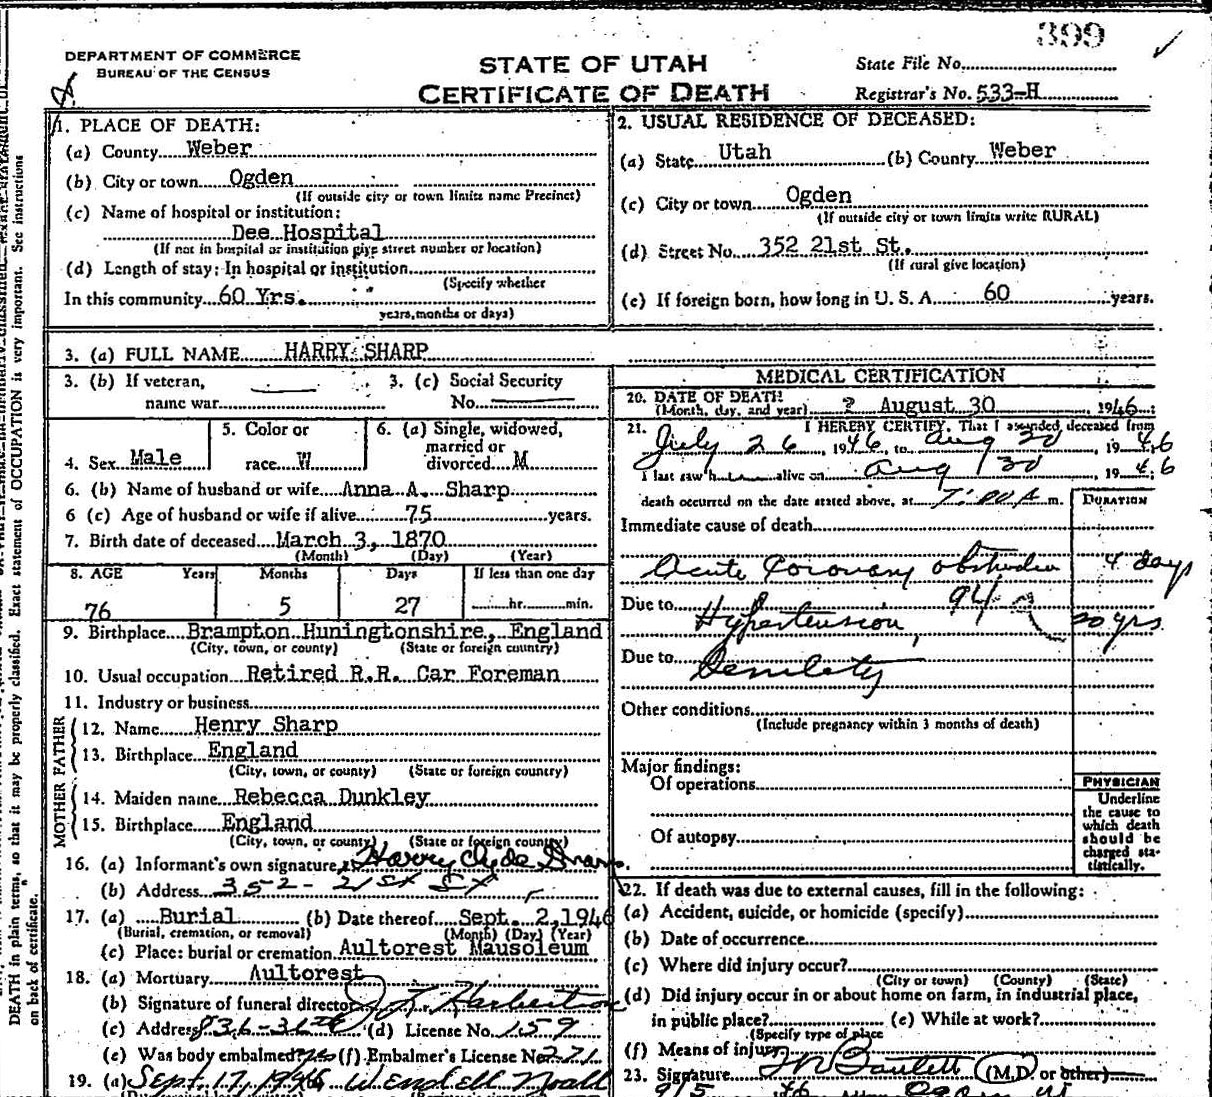 399
DEPARTMENT OF COMMERCE
BUREAU OF THE CENSUS
STATE OF UTAH
CERTIFICATE OF DEATH
State File No.
Registrar's No. 533-H
1. PLACE OF DEATH:
(a) County Weber
(b) City or town Ogden
(If outside city or town limits name Precinct)
(c) Name of hospital or institution:
Dee Hospital
(If not in hospital or institution give street number or location)
(d) Length of stay: In hospital or institution
(Specify whether
In this community 60 Yrs.
years, months or days)
2. USUAL RESIDENCE OF DECEASED:
(a) State Utah (b) County Weber
(c) City or town Ogden
(If outside city or town limits write RURAL)
(d) Street No. 352 21st St.
(If rural give location)
(e) If foreign born, how long in U. S. A. 60 years.
3. (a) FULL NAME HARRY SHARP
3. (b) If veteran, 3. (c) Social Security
name war No.
4. Sex Male
5. Color or
race W
6. (a) Single, widowed,
married or
divorced M
6. (b) Name of husband or wife Anna A. Sharp
6 (c) Age of husband or wife if alive 75 years.
7. Birth date of deceased March 3, 1870
(Month) (Day) (Year)
8. AGE Years Months Days If less than one day
76 5 27 hr. min.
9. Birthplace Brampton Huningtonshire, England
(City, town, or county) (State or foreign country)
10. Usual occupation Retired R.R. Car Foreman
11. Industry or business
FATHER
12. Name Henry Sharp
13. Birthplace England
(City, town, or county) (State or foreign country)
MOTHER
14. Maiden name Rebecca Dunkley
15. Birthplace England
(City, town, or county) (State or foreign country)
16. (a) Informant's own signature Harry Clyde Sharp
(b) Address 352 - 21st St
17. (a) Burial (b) Date thereof Sept. 2, 1946
(Burial, cremation, or removal) (Month) (Day) (Year)
(c) Place: burial or cremation Aultorest Mausoleum
18. (a) Mortuary Aultorest
(b) Signature of funeral director
(c) Address 836-36th (d) License No. 159
(e) Was body embalmed? yes (f) Embalmer's License No. 271
19. (a) Sept. 17, 1946 Wendell Noall
MEDICAL CERTIFICATION
20. DATE OF DEATH
(Month, day, and year) ? August 30, 1946
21. I HEREBY CERTIFY, That I attended deceased from
July 26, 1946, to Aug 30, 1946
I last saw h alive on Aug 30, 1946
death occurred on the date stated above, at 7:00 A m.
DURATION
Immediate cause of death
Acute Coronary 4 days
94
Due to Hypertension, 20 yrs
Due to
Other conditions
(Include pregnancy within 3 months of death)
Major findings:
Of operations
Of autopsy
PHYSICIAN
Underline
the cause to
which death
should be
charged sta-
tistically.
22. If death was due to external causes, fill in the following:
(a) Accident, suicide, or homicide (specify)
(b) Date of occurrence
(c) Where did injury occur?
(City or town) (County) (State)
(d) Did injury occur in or about home on farm, in industrial place,
in public place? (e) While at work?
(Specify type of place
(f) Means of injury
23. Signature Bartlett (M.D. or other)
9/5 46
DEATH in plain terms, so that it may be properly classified. Exact statement of OCCUPATION is very important. See instructions
on back of certificate.